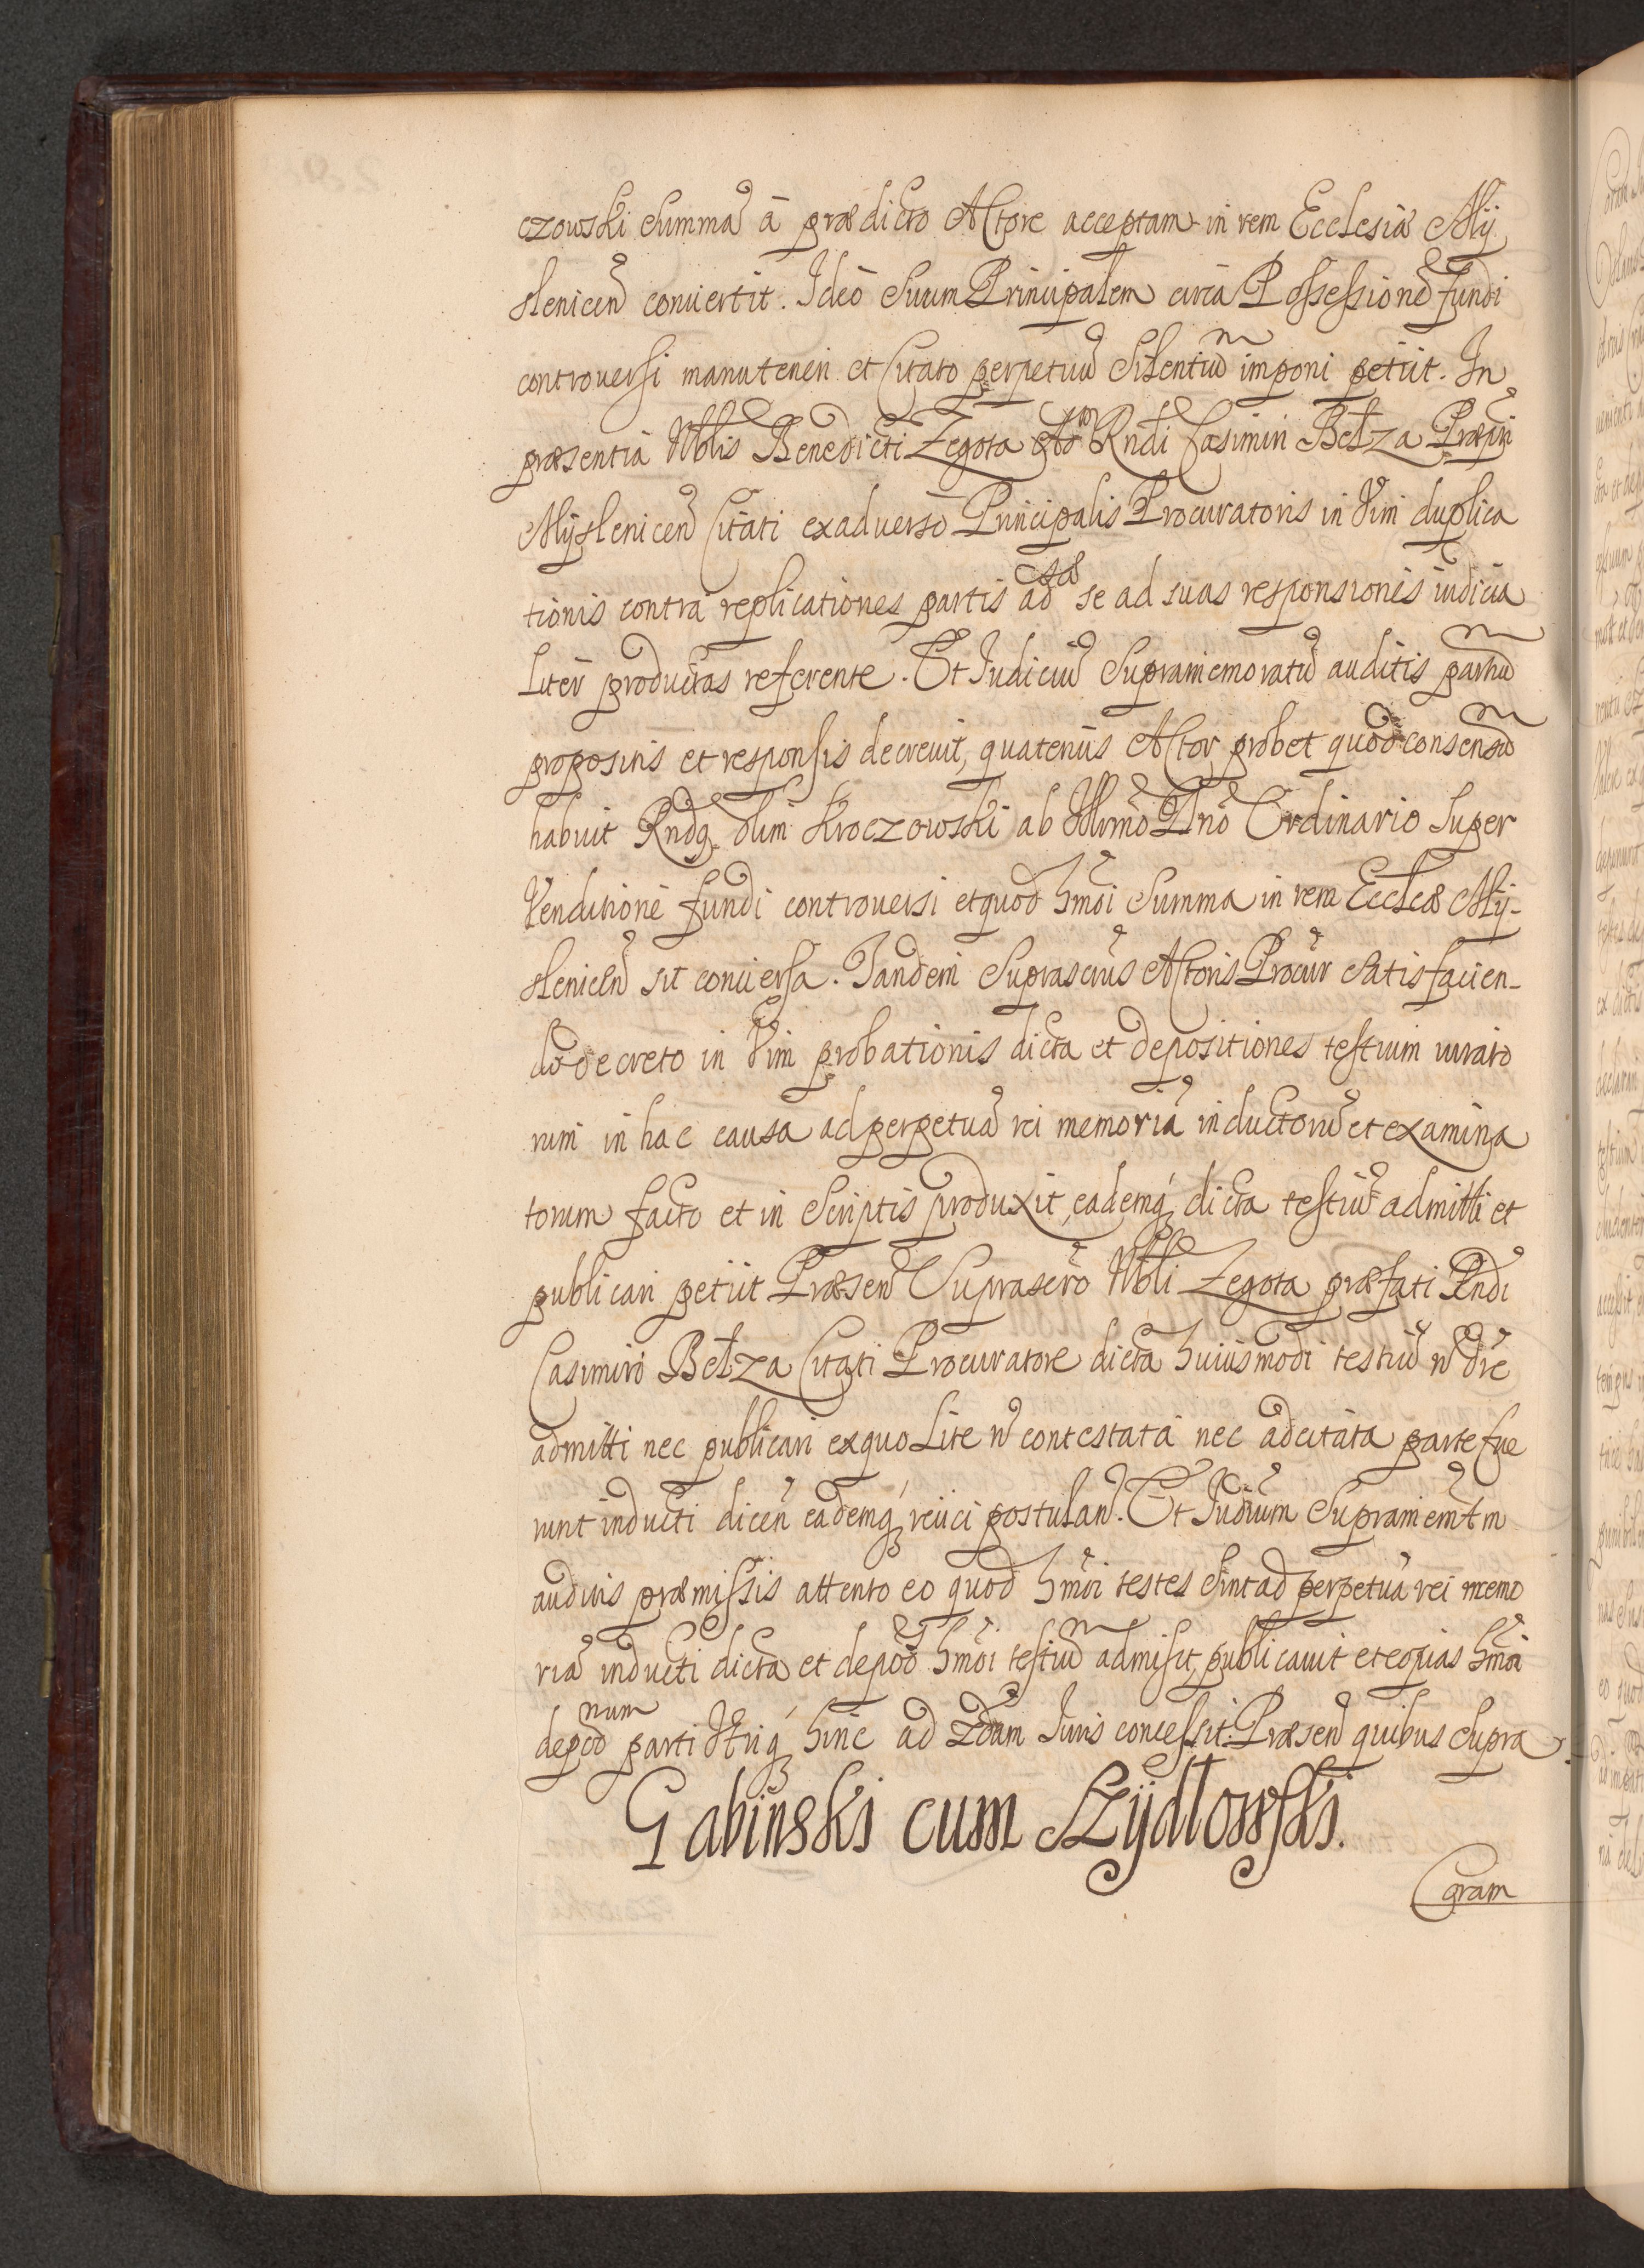 czowski Summã â prædicto Actore acceptam in rem Ecclesiæ My
slenicen̄ conuertit. Ideo Suum Principalem circa Possessionẽ fundi
controuersi manuteneri et Citato perpetuũ Silentiũ imponi petiit. In
præsentia Nblis Benedicti Zegota Rndi Casimiri Betza Præpti
Myslenicen̄ Citati exaduerso Principalis Procuratoris in Vim duplica
tionis contra replicationes partis ad se ad suas responsionis iudicia
Liter productas referente. Et Iudiciũ Supramemoratũ auditis partiũ
propositis et responsis decreuit, quatenus Actor probet quod consensũ
habuit Rndq olim Kroczowski ab Illrmo Dno Ordinario Super
Venditione fundi controuersi et quod hmõi Summa in rem Ecclæ My-
slenicen̄ sit conuersa. Tandem Suprascrus Actoris Procur Satisfacien-
do decreto in Vim probationis dicta et depositiones testium iurato
rum in hac causa ad perpetuã rei memoriã inductorũ et examina
torum facto et in Scriptis produxit, eademq dicta testiũ admitti et
publicari petiit Præsen̄ Suprascro Nbli Zegota præfati Rndi
Casimiri Betza Citati Procuratore dicta huiusmodi testiũ n̄ dre
admitti nec publicari exquo Lite n̄ contestata nec adcitata parte fue
runt inducti dicen̄ eademq reiici postulan̄. Et Iudium Supramemtm
auditis præmissis attento eo quod hmõi testes Sint ad perpetuã rei memo
riã inducti dicta et depod hmõi testiũ admisit, publicauit et copias hmõi
depod num parti Utriq hinc ad 2dam Iuris concessit. Præsen̄ quibus Supra.
Gabinski cum Szydlowski.
Coram